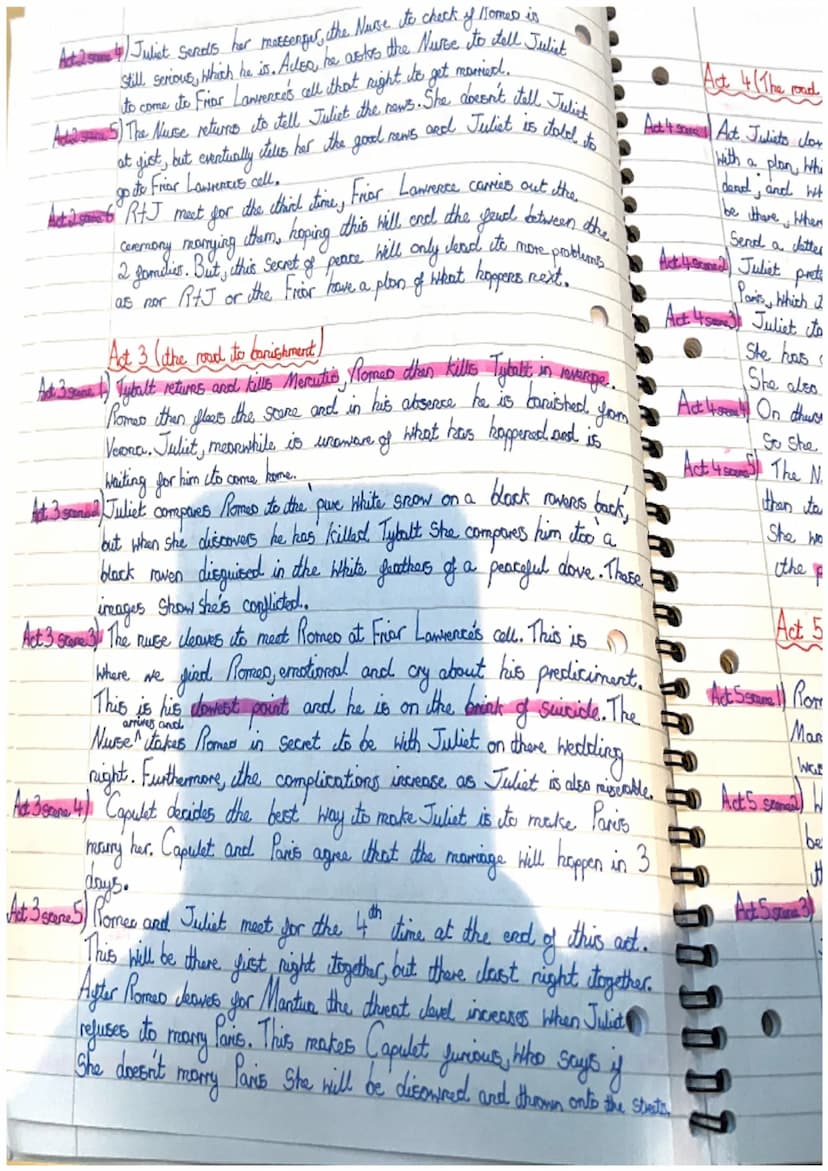 Act 2 scene 4) Juliet sends her messenger, the Nurse to check if Romeo is
still serious, which he is. Also, he asks the Nurse to tell Juliet
to come to Friar Lawrence's cell that night to get married.
Act 2 scene 5) The Nurse returns to tell Juliet the news. She doesn't tell Juliet
at fist, but eventually tells her the good news and Juliet is told to
go to Friar Lawrences cell.
Act 2 scene 6 R+J meet for the third time, Friar Lawrence carries out the
ceremony marrying them, hoping this will end the feud between the
2 families. But, this secret of peace will only lead to more problems
as nor R+J or the Friar have a plan of what happens next.
Act 3 (the road to banishment)
Act 3 scene 1) Tybalt returns and kills Mercutio, Romeo then kills Tybalt in revenge.
Romeo then flees the scene and in his absence he is banished from
Verona. Juliet, meanwhile is unaware of what has happened and is
waiting for him to come home.
Act 3 scene 2) Juliet compares Romeo to the 'pure white snow on a black ravens back',
but when she discovers he has killed Tybalt she compares him too 'a
black raven disguised in the white feathers of a peaceful dove. These
images show she's conflicted.
Act 3 scene 3) The nurse leaves to meet Romeo at Friar Lawrence's cell. This is
where we find Romeo, emotional and cry about his prediciment.
This is his lowest point and he is on the brink of suicide. The
Nurse ^ arrives and takes Romeo in secret to be with Juliet on there wedding
night. Furthermore, the complications increase as Juliet is also miserable.
Act 3 scene 4) Capulet decides the best way to make Juliet is to make Paris
marry her. Capulet and Paris agree that the marriage will happen in 3
days.
Act 3 scene 5) Romeo and Juliet meet for the 4th time at the end of this act.
This will be there first night together, but there last night together.
After Romeo leaves for Mantua the threat level increases when Juliet
refuses to marry Paris. This makes Capulet furious, who says if
she doesn't marry Paris she will be disowned and thrown onto the streets.
Act 4 (The road
Act 4 scene 1) Act Juliets
with a plan,
dead, and
be there, when
Send a letter
Act 4 scene 2) Juliet
Paris, which
Act 4 scene 3) Juliet
She has
She also
Act 4 scene 4) On
So she
Act 4 scene 5) The N
then
She
the
Act 5
Act 5 scene 1) Rom
Man
was
Act 5 scene 2)
be
Act 5 scene 3)